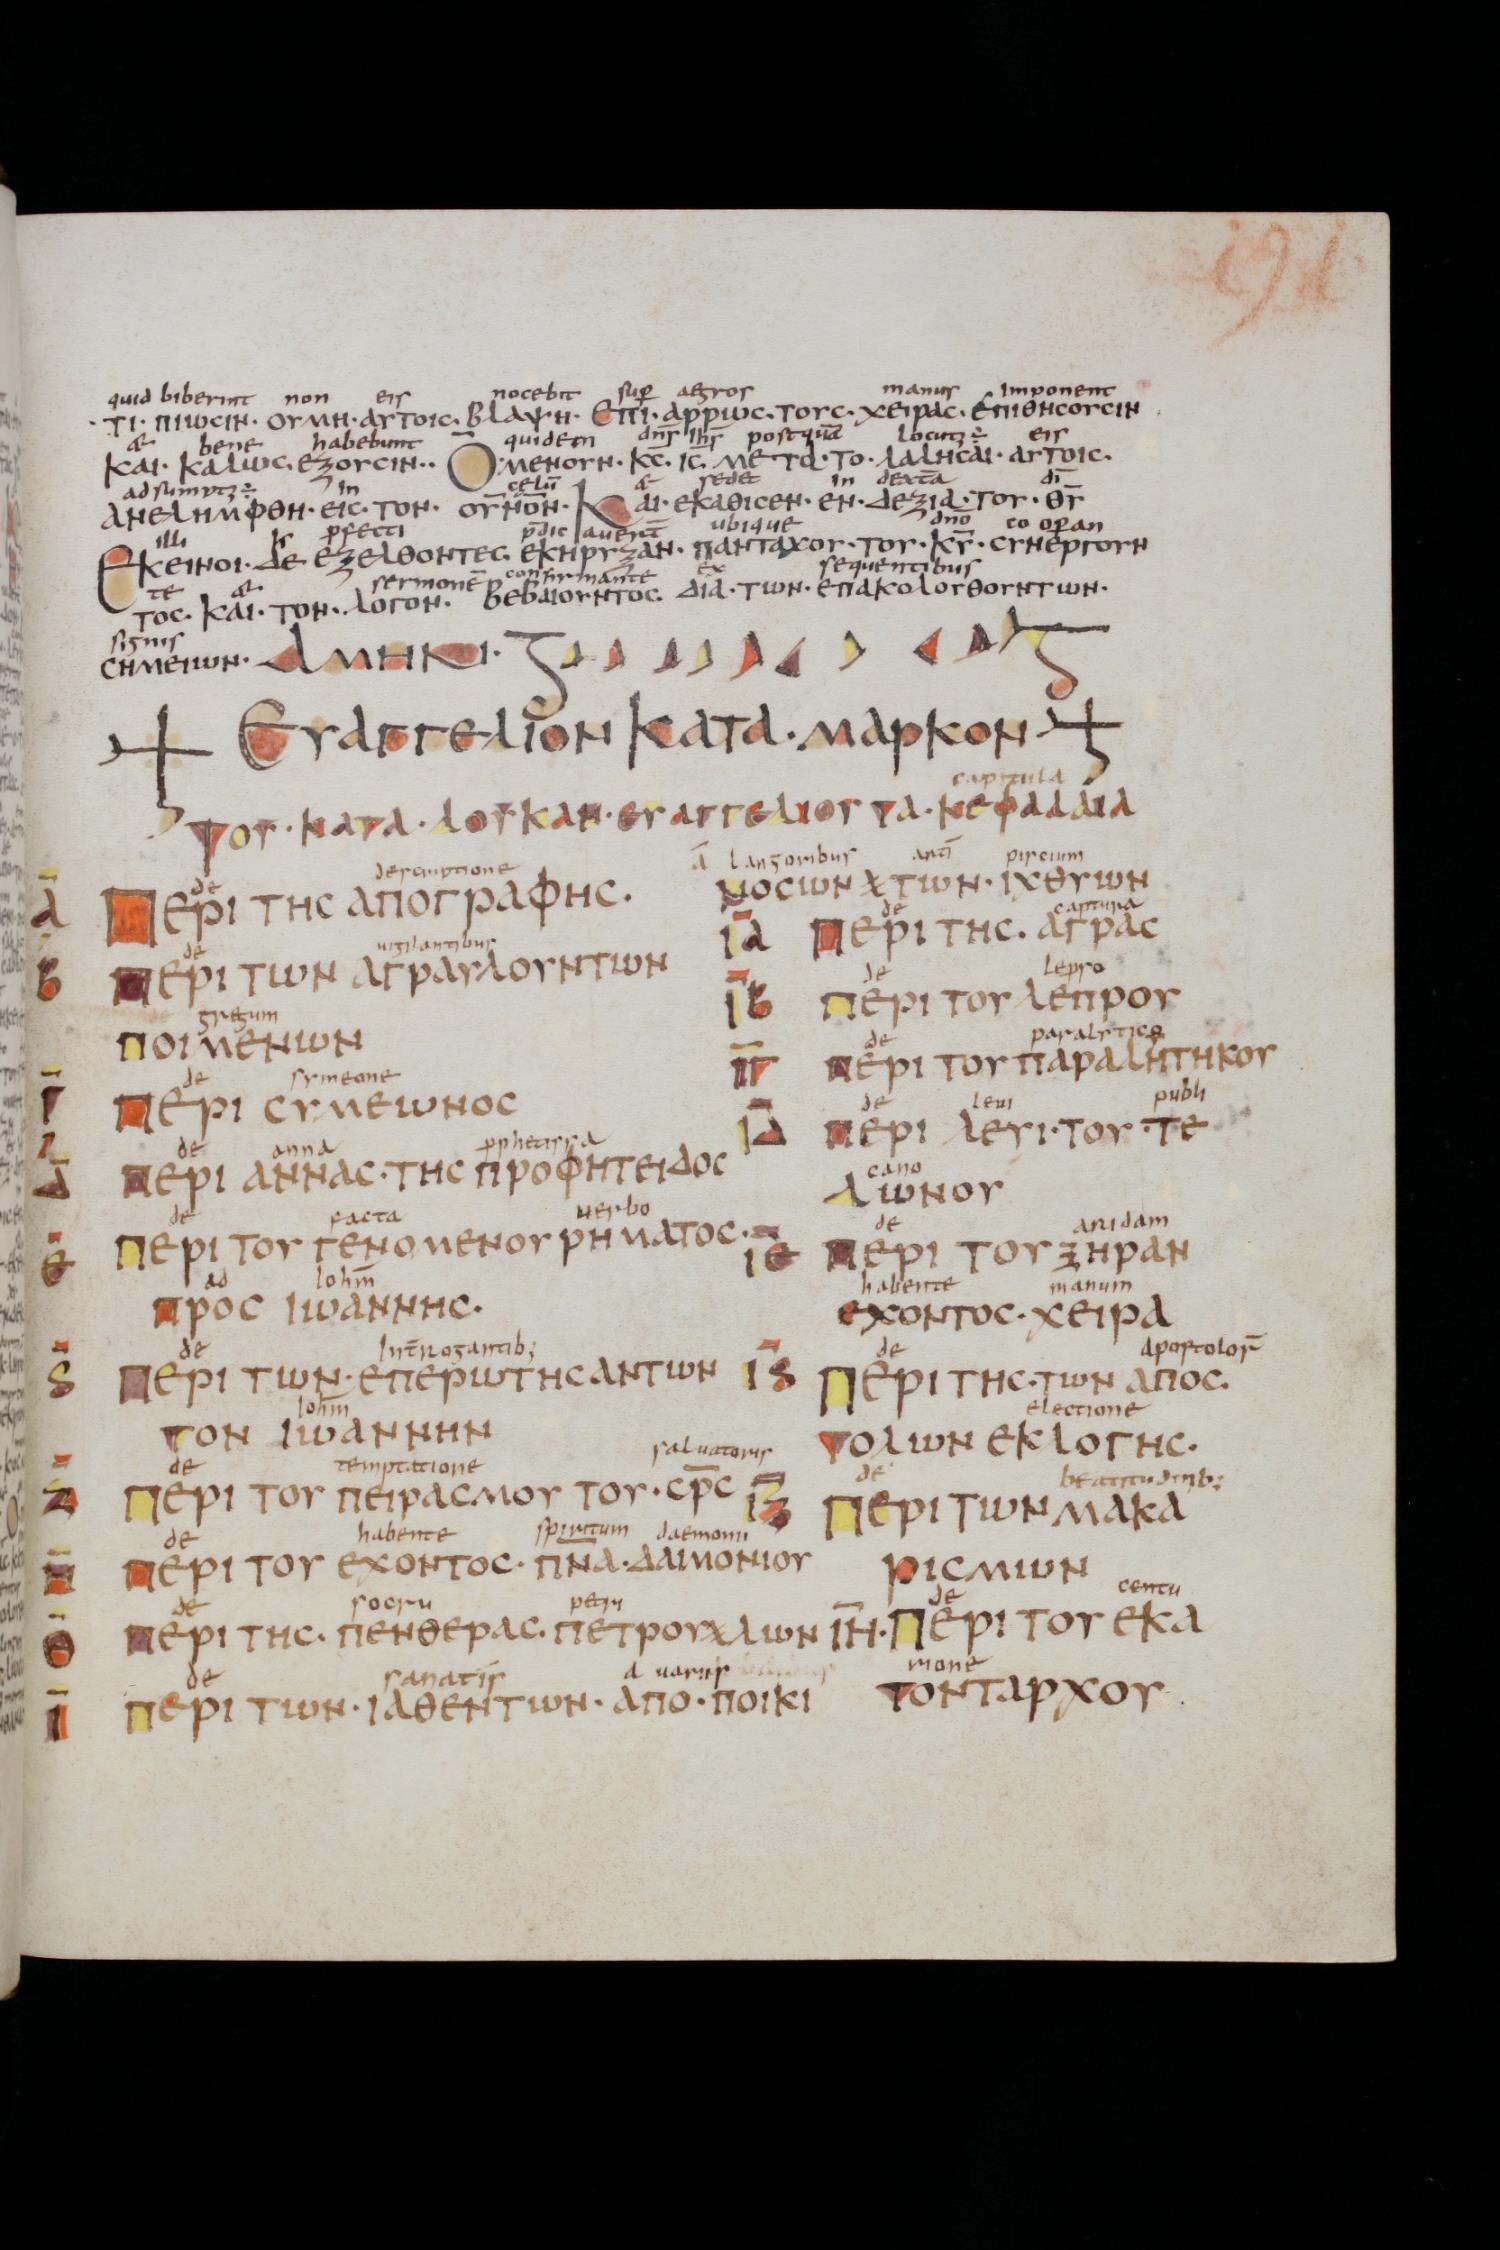 191
quid biberint non eis nocebit sup̄ aegros manus Imponent
·ΤΙ· ΠΙΩCΙΝ· ΟΥΜΗ· ΑΥΤΟΙC· ΒΛΑΨΗ· ΕΠΙ· ΑΡΡΙΩC· ΤΟΥC· ΧΕΙΡΑC· ΕΠΙΘΗCΟΥCΙΝ
& bene habebunt quidem dn̄s ihs̄ postquā locutꝫ÷ eis
ΚΑΙ· ΚΑΛΩC· ΕΞΟΥCΙΝ·· Ο·ΜΕΝΟΥΝ· Κ̄C̄· ῙC̄· ΜΕΤΑ·ΤΟ·ΛΑΛΗCΑΙ·ΑΥΤΟΙC·
adsumptꝫ÷ in celū & sedet in dextā dī
ΑΝΕΛΗΜΦΘΗ·ΕΙC·ΤΟΝ· ΟῩΝΟ̄Ν· ΚΑΙ·ΕΚΑΘΙCΕΝ· ΕΝ·ΔΕΞΙΑ·ΤΟΥ·Θ̄Ῡ
illi p̄fecti p̄dicauer̄t ubique dn̄o co op̄an
ΕΚΕΙΝΟΙ·ΔΕ ΕΞΕΛΘΟΝΤΕC· ΕΚΗΡΥΞΑΝ· ΠΑΝΤΑΧΟΥ·ΤΟΥ·Κ̄Ῡ·CΥΝΕΡΓΟΥΝ
te & sermonē confirmante ex sequentibus
ΤΟC·ΚΑΙ·ΤΟΝ·ΛΟΓΟΝ· ΒΕΒΑΙΟΥΝΤΟC· ΔΙΑ·ΤΩΝ·ΕΠΑΚΟΛΟΥΘΟΥΝΤΩΝ·
signis
CΗΜΕΙΩΝ· ΑΜΗΝ·
ΕΥΑΓΓΕΛΙΟΝ ΚΑΤΑ·ΜΑΡΚΟΝ
capitula
ΤΟΥ·ΚΑΤΑ·ΛΟΥΚΑΝ·ΕΥΑΓΓΕΛΙΟΥ ΤΑ·ΚΕΦΑΛΑΙΑ
de descriptione
Ᾱ ΠΕΡΙ ΤΗC ΑΠΟΓΡΑΦΗC·
de uigilantibus
Β̄ ΠΕΡΙ ΤΩΝ ΑΓΡΑΥΛΟΥΝΤΩΝ
gregum
ΠΟΙΜΕΝΙΩΝ
de symeone
Γ̄ ΠΕΡΙ CΥΜΕΩΝΟC
de anna p̄phetissa
Δ̄ ΠΕΡΙ ΑΝΝΑC·ΤΗC ΠΡΟΦΗΤΕΙΔΟC
de facta uerbo
Ε̄ ΠΕΡΙ ΤΟΥ ΓΕΝΟΜΕΝΟΥ ΡΗΜΑΤΟC·
ad Iohm̄
ΠΡΟC ΙΩΑΝΝΗC·
de Int̄rogantib;
S̄ ΠΕΡΙ ΤΩΝ·ΕΠΕΡΩΤΗCΑΝΤΩΝ
Iohm̄
ΤΟΝ ΙΩΑΝΝΗΝ
de temptatione saluatoris
Ζ̄ ΠΕΡΙ ΤΟΥ ΠΕΙΡΑCΜΟΥ ΤΟΥ·CΡ̄C
de habente spiritum daemonii
Η̄ ΠΕΡΙ ΤΟΥ ΕΧΟΝΤΟC·ΠΝ̄Α·ΔΑΙΜΟΝΙΟΥ
de socru petri
Θ̄ ΠΕΡΙ ΤΗC·ΠΕΝΘΕΡΑC·ΠΕΤΡΟΥ
de sanatis a uariis
Ῑ ΠΕΡΙ ΤΩΝ·ΙΑΘΕΝΤΩΝ·ΑΠΟ·ΠΟΙΚΙ
ā langoribus piscium
ΝΟCΩΝ ΧΤΩΝ·ΙΧΘΥΩΝ
de captura
ῙΑ ΠΕΡΙ ΤΗC·ΑΓΡΑC
de lepro
ῙΒ ΠΕΡΙ ΤΟΥ ΛΕΠΡΟΥ
de paralytico
ῙΓ ΠΕΡΙ ΤΟΥ ΠΑΡΑΛΗΤΗΚΟΥ
de leui publi
ῙΔ ΠΕΡΙ ΛΕΥΙ·ΤΟΥ·ΤΕ
cano
ΛΩΝΟΥ
de aridam
ῙΕ ΠΕΡΙ ΤΟΥ ΞΗΡΑΝ
habente manum
ΕΧΟΝΤΟC·ΧΕΙΡΑ
de apostolor̄
ῙS ΠΕΡΙ ΤΗC·ΤΩΝ ΑΠΟC·
electione
ΤΟΛΩΝ ΕΚΛΟΓΗC·
de beatitudinib;
ῙΖ ΠΕΡΙ ΤΩΝ ΜΑΚΑ
ΡΙCΜΩΝ
de centu
ῙΗ·ΠΕΡΙ ΤΟΥ ΕΚΑ
rione
ΤΟΝΤΑΡΧΟΥ·